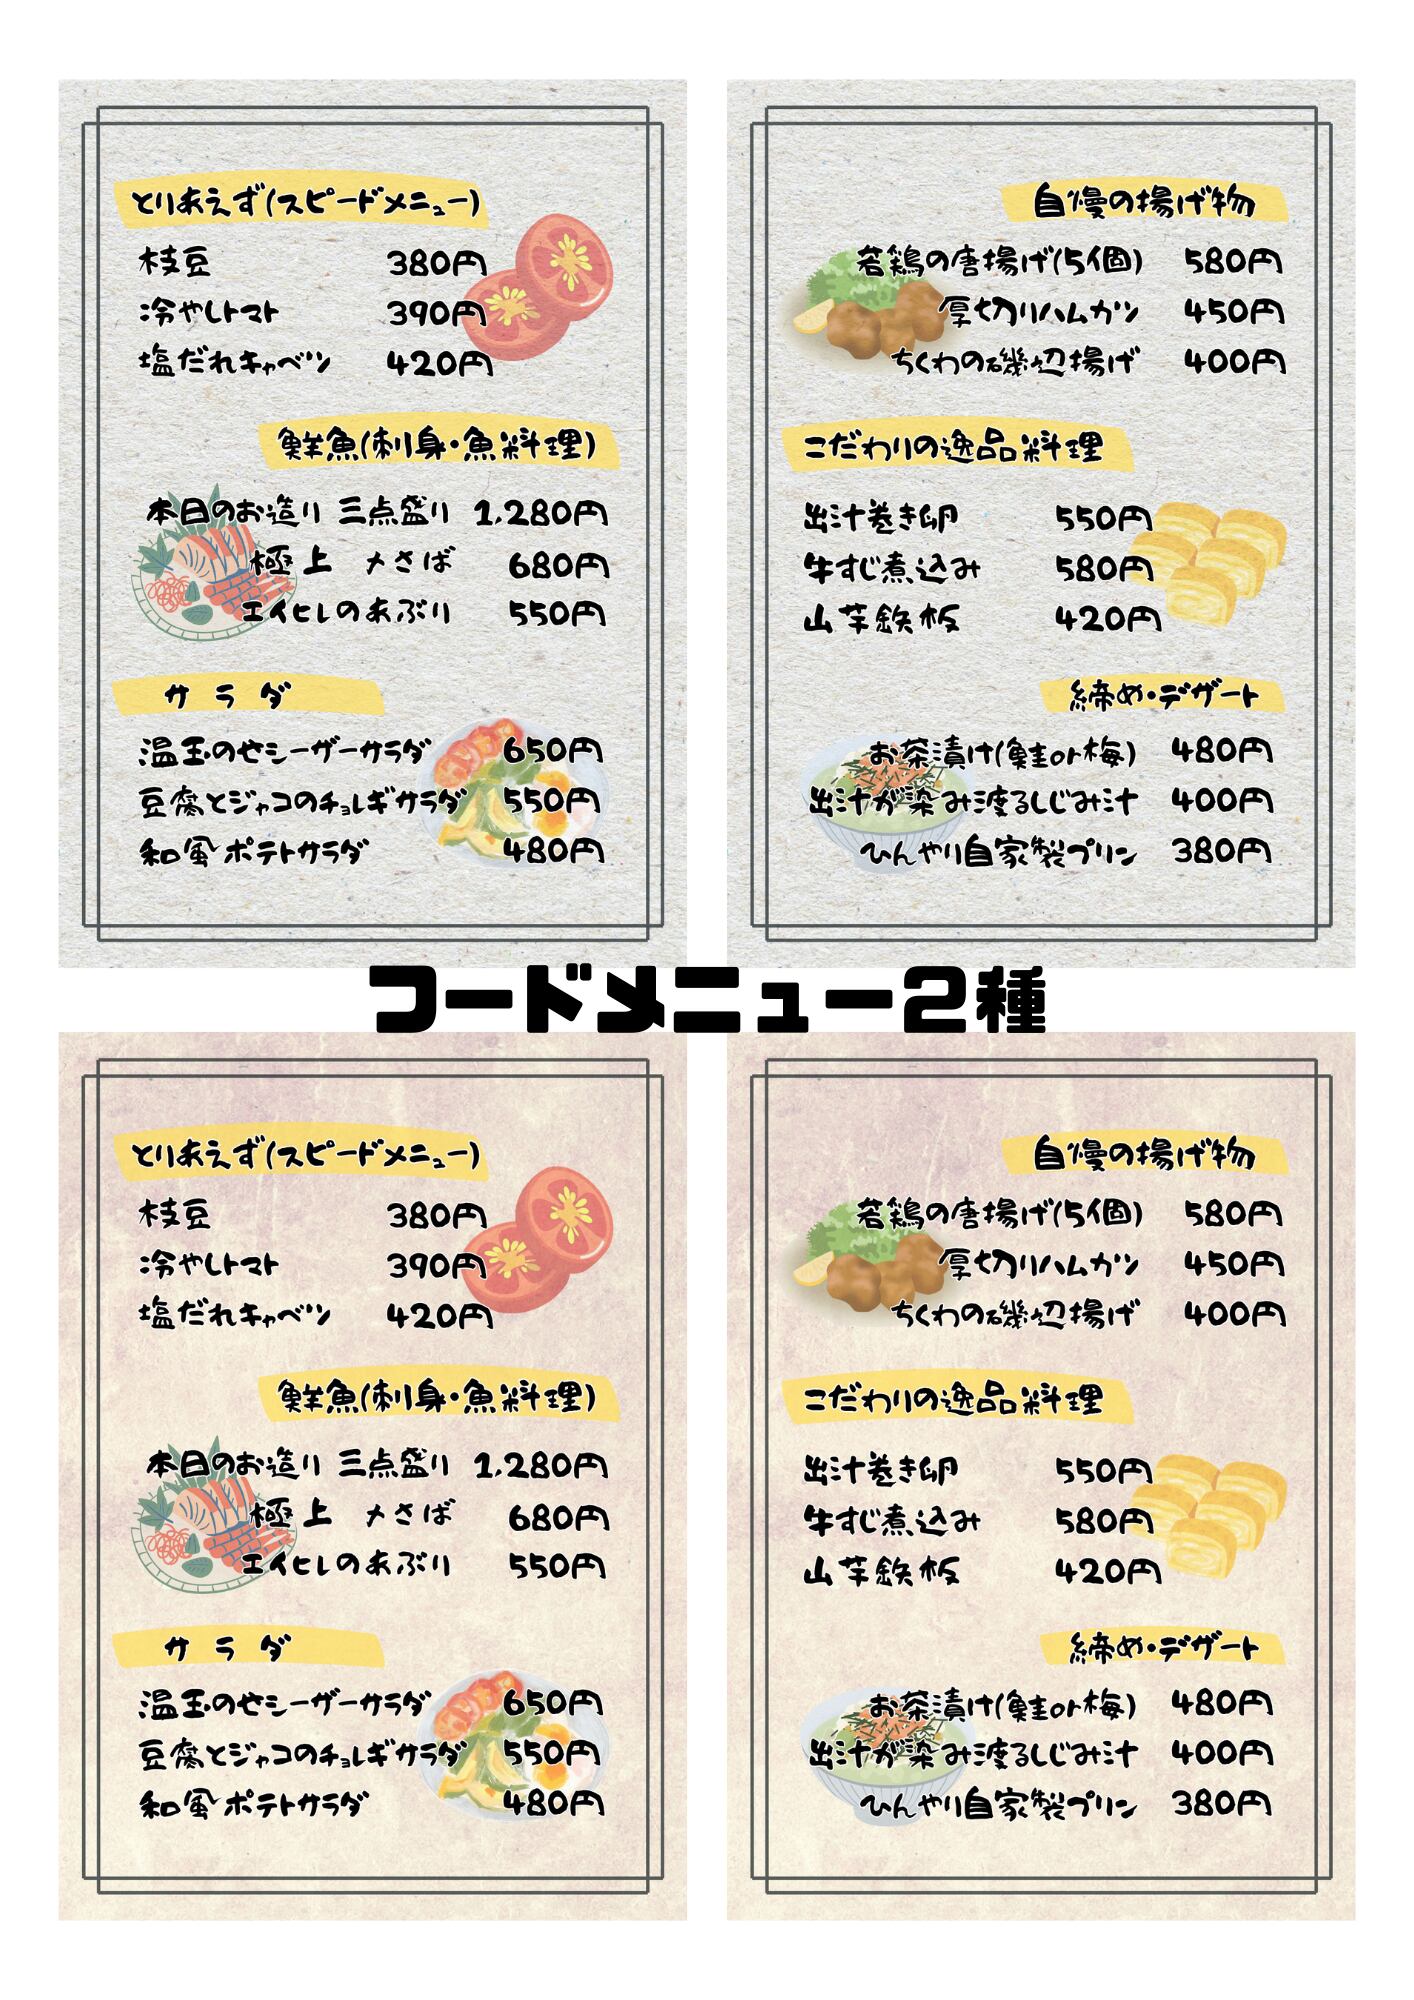 とりあえず(スピードメニュー)
枝豆 380円
冷やしトマト 390円
塩だれキャベツ 420円
鮮魚(刺身・魚料理)
本日のお造り 三点盛り 1,280円
極上 〆さば 680円
エイヒレのあぶり 550円
サラダ
温玉のせシーザーサラダ 650円
豆腐とジャコのチョレギサラダ 550円
和風ポテトサラダ 480円
自慢の揚げ物
若鶏の唐揚げ(5個) 580円
厚切りハムカツ 450円
ちくわの磯辺揚げ 400円
こだわりの逸品料理
出汁巻き卵 550円
牛すじ煮込み 580円
山芋鉄板 420円
締め・デザート
お茶漬け(鮭or梅) 480円
出汁が染み渡るしじみ汁 400円
ひんやり自家製プリン 380円
フードメニュー2種
とりあえず(スピードメニュー)
枝豆 380円
冷やしトマト 390円
塩だれキャベツ 420円
鮮魚(刺身・魚料理)
本日のお造り 三点盛り 1,280円
極上 〆さば 680円
エイヒレのあぶり 550円
サラダ
温玉のせシーザーサラダ 650円
豆腐とジャコのチョレギサラダ 550円
和風ポテトサラダ 480円
自慢の揚げ物
若鶏の唐揚げ(5個) 580円
厚切りハムカツ 450円
ちくわの磯辺揚げ 400円
こだわりの逸品料理
出汁巻き卵 550円
牛すじ煮込み 580円
山芋鉄板 420円
締め・デザート
お茶漬け(鮭or梅) 480円
出汁が染み渡るしじみ汁 400円
ひんやり自家製プリン 380円